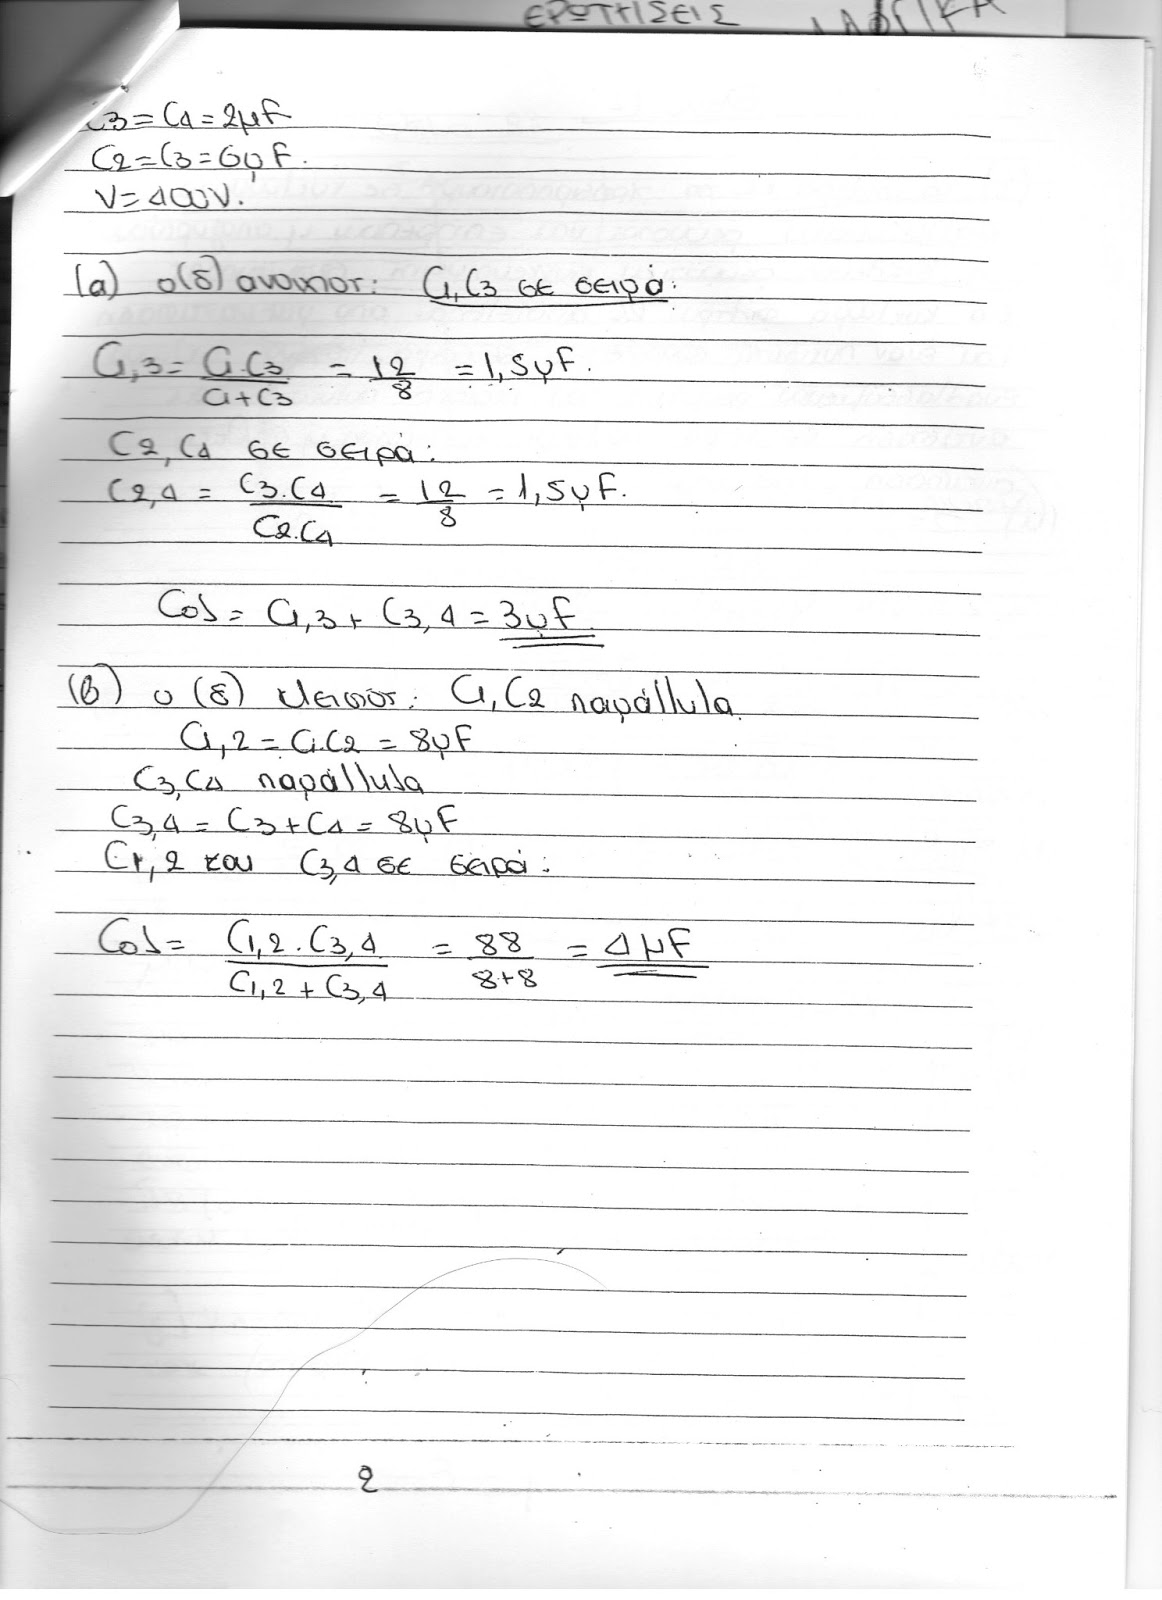 ΕΡΩΤΗΣΕΙΣ
C3 = C4 = 2μF
C2 = C3 = 6μF.
V = 400V.
(α) ο(δ) ανοικτοσ: C1, C3 σε σειρά:
C1,3 = C1·C3 / C1+C3 = 12/8 = 1,5μF.
C2, C4 σε σειρά:
C2,4 = C3·C4 / C2·C4 = 12/8 = 1,5μF.
Cολ = C1,3 + C3,4 = 3μF
(β) ο (δ) κλειστοσ: C1, C2 παράλληλα.
C1,2 = C1·C2 = 8μF
C3, C4 παράλληλα
C3,4 = C3 + C4 = 8μF
C1,2 και C3,4 σε σειρά:
Cολ = C1,2 · C3,4 / C1,2 + C3,4 = 88 / 8+8 = 4μF
2